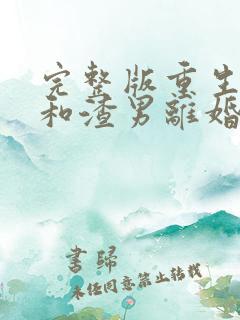 完整版重生
和渣男離婚
書歸
未經同意禁止轉載